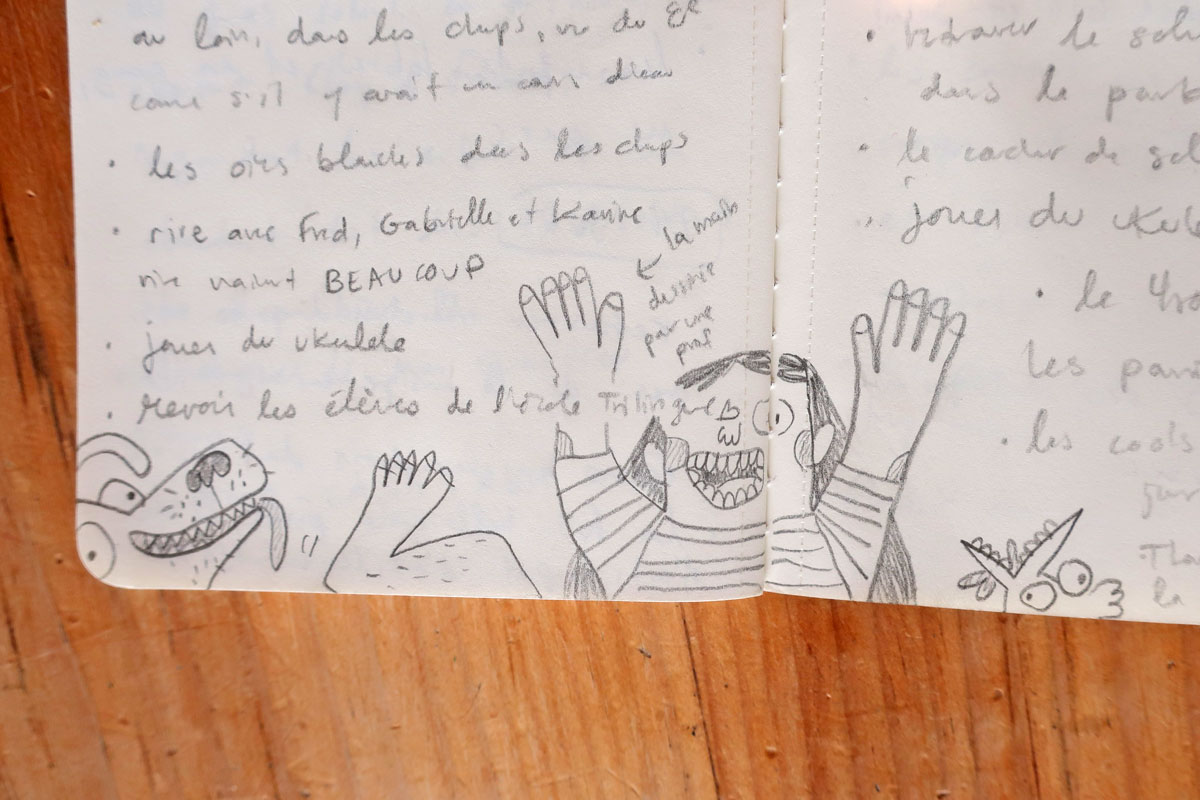 au loin, dans les champs, vu du 8e
comme s'il y avait un cours d'eau
• les oies blanches dans les champs
• rire avec Fred, Gabrielle et Karine
rire vraiment BEAUCOUP
• jouer du ukulele
• revoir les élèves de l'école Trilingue
la main
dessinée
par une
prof
• retrouver le
dans le
• le
• jouer du ukule
• le
les
• les
la